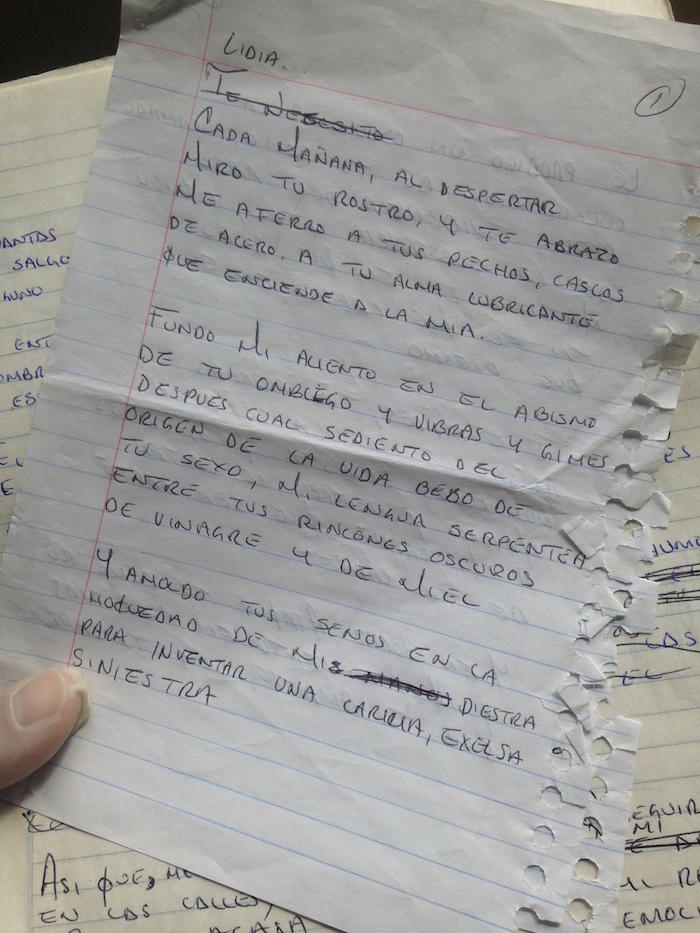 LIDIA...
1
TE NECESITO
CADA MAÑANA, AL DESPERTAR
MIRO TU ROSTRO, Y TE ABRAZO
ME AFERRO A TUS PECHOS, CASCOS
DE ACERO, A TU ALMA LUBRICANTE
QUE ENCIENDE A LA MIA.
FUNDO MI ALIENTO EN EL ABISMO
DE TU OMBLEGO Y VIBRAS Y GIMES
DESPUES CUAL SEDIENTO DEL
ORIGEN DE LA VIDA BEBO DE
TU SEXO, MI LENGUA SERPENTEA
ENTRE TUS RINCONES OSCUROS
DE VINAGRE Y DE MIEL
Y AMOLDO TUS SENOS EN LA
HOQUEDAD DE MIS MANOS DIESTRA
PARA INVENTAR UNA CARICIA, EXELSA
SINIESTRA
SALGO
ENT
OMBR
ES
ES
HUMO
LOS
EL
EGUIR
MI
ASI QUE, ME
EN LAS CALLES,
EMOCI